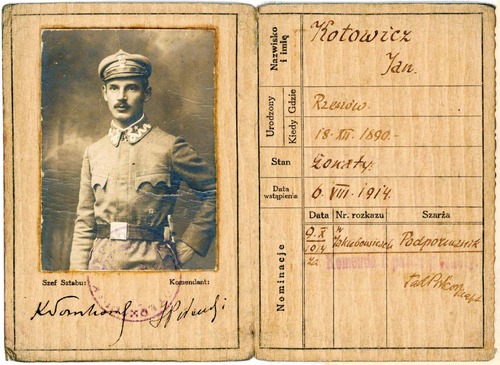 Szef Sztabu: Komendant:
Nazwisko i imię
Kotowicz
Jan.
Urodzony
Kiedy Gdzie
Rzeszów.
18. XII. 1890.-
Stan
Żonaty.
Data wstąpienia
6. VIII. 1914.
Nominacje
Data Nr. rozkazu Szarża
9. X 1914 w Jakubowicach Podporucznik